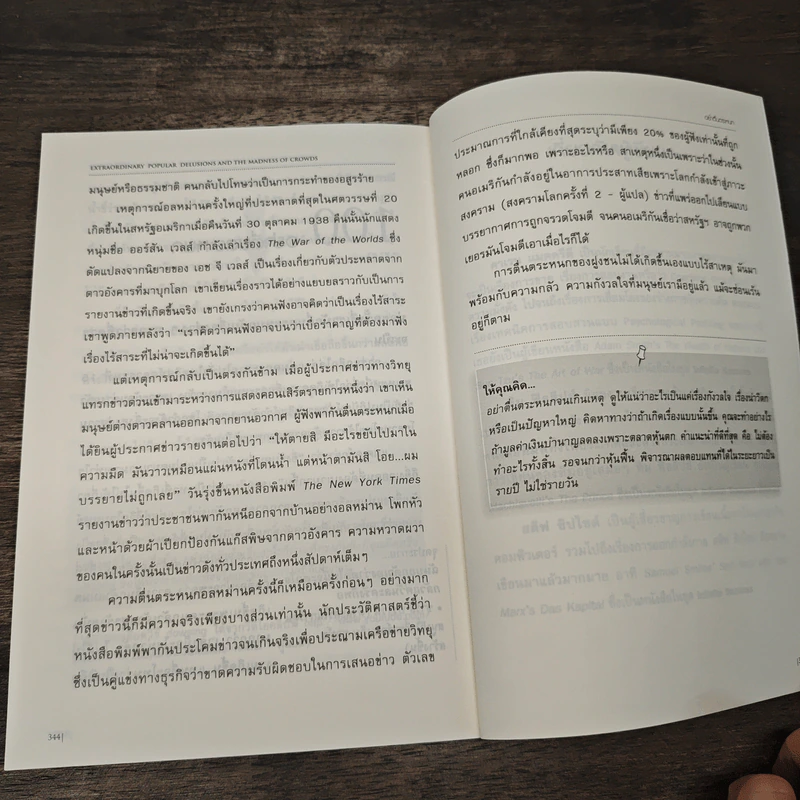 EXTRAORDINARY POPULAR DELUSIONS AND THE MADNESS OF CROWDS
มนุษย์หรือธรรมชาติ คนกลับไปโทษว่าเป็นการกระทำของอสูรร้าย
เหตุการณ์อลหม่านครั้งใหญ่ที่ประหลาดที่สุดในศตวรรษที่ 20
เกิดขึ้นในสหรัฐอเมริกาเมื่อคืนวันที่ 30 ตุลาคม 1938 คืนนั้นนักแสดง
หนุ่มชื่อ ออร์สัน เวลส์ กำลังเล่าเรื่อง The War of the Worlds ซึ่ง
ดัดแปลงจากนิยายของ เอช จี เวลส์ เป็นเรื่องเกี่ยวกับตัวประหลาดจาก
ดาวอังคารที่มาบุกโลก เขาเขียนเรื่องราวได้อย่างแยบยลราวกับเป็นการ
รายงานข่าวที่เกิดขึ้นจริง เขายังเกรงว่าคนฟังอาจคิดว่าเป็นเรื่องไร้สาระ
เขาพูดภายหลังว่า “เราคิดว่าคนฟังอาจบ่นว่าเบื่อรำคาญที่ต้องมาฟัง
เรื่องไร้สาระที่ไม่น่าจะเกิดขึ้นได้”
แต่เหตุการณ์กลับเป็นตรงกันข้าม เมื่อผู้ประกาศข่าวทางวิทยุ
แทรกข่าวด่วนเข้ามาระหว่างการแสดงคอนเสิร์ตรายการหนึ่งว่า เขาเห็น
มนุษย์ต่างดาวคลานออกมาจากยานอวกาศ ผู้ฟังพากันตื่นตระหนกเมื่อ
ได้ยินผู้ประกาศข่าวรายงานต่อไปว่า “ให้ตายสิ มีอะไรขยับไปมาใน
ความมืด มันวาวเหมือนแผ่นหนังที่โดนน้ำ แต่หน้าตามันสิ โอย...ผม
บรรยายไม่ถูกเลย” วันรุ่งขึ้นหนังสือพิมพ์ The New York Times
รายงานข่าวว่าประชาชนพากันหนีออกจากบ้านอย่างอลหม่าน โพกหัว
และหน้าด้วยผ้าเปียกป้องกันแก๊สพิษจากดาวอังคาร ความหวาดผวา
ของคนในครั้งนั้นเป็นข่าวดังทั่วประเทศถึงหนึ่งสัปดาห์เต็มๆ
ความตื่นตระหนกอลหม่านครั้งนี้ก็เหมือนครั้งก่อนๆ อย่างมาก
ที่สุดข่าวนี้ก็มีความจริงเพียงบางส่วนเท่านั้น นักประวัติศาสตร์ชี้ว่า
หนังสือพิมพ์พากันประโคมข่าวจนเกินจริงเพื่อประณามเครือข่ายวิทยุ
ซึ่งเป็นคู่แข่งทางธุรกิจว่าขาดความรับผิดชอบในการเสนอข่าว ตัวเลข
344|
อย่าตื่นตระหนก
ประมาณการที่ใกล้เคียงที่สุดระบุว่ามีเพียง 20% ของผู้ฟังเท่านั้นที่ถูก
หลอก ซึ่งก็มากพอ เพราะอะไรหรือ สาเหตุหนึ่งเป็นเพราะว่าในช่วงนั้น
คนอเมริกันกำลังอยู่ในอาการประสาทเสียเพราะโลกกำลังเข้าสู่ภาวะ
สงคราม (สงครามโลกครั้งที่ 2 - ผู้แปล) ข่าวที่แพร่ออกไปเลียนแบบ
บรรยากาศการถูกจรวดโจมตี จนคนอเมริกันเชื่อว่าสหรัฐฯ อาจถูกพวก
เยอรมันโจมตีเอาเมื่อไรก็ได้
การตื่นตระหนกของฝูงชนไม่ได้เกิดขึ้นเองแบบไร้สาเหตุ มันมา
พร้อมกับความกลัว ความกังวลใจที่มนุษย์เรามีอยู่แล้ว แม้จะซ่อนเร้น
อยู่ก็ตาม
ให้คุณคิด...
อย่าตื่นตระหนกจนเกินเหตุ ดูให้แน่ว่าอะไรเป็นแค่เรื่องกังวลใจ เรื่องน่าวิตก
หรือเป็นปัญหาใหญ่ คิดหาทางว่าถ้าเกิดเรื่องแบบนั้นขึ้น คุณจะทำอย่างไร
ถ้ามูลค่าเงินบำนาญลดลงเพราะตลาดหุ้นตก คำแนะนำที่ดีที่สุด คือ ไม่ต้อง
ทำอะไรทั้งสิ้น รอจนกว่าหุ้นฟื้น พิจารณาผลตอบแทนที่ได้ในระยะยาวเป็น
รายปี ไม่ใช่รายวัน